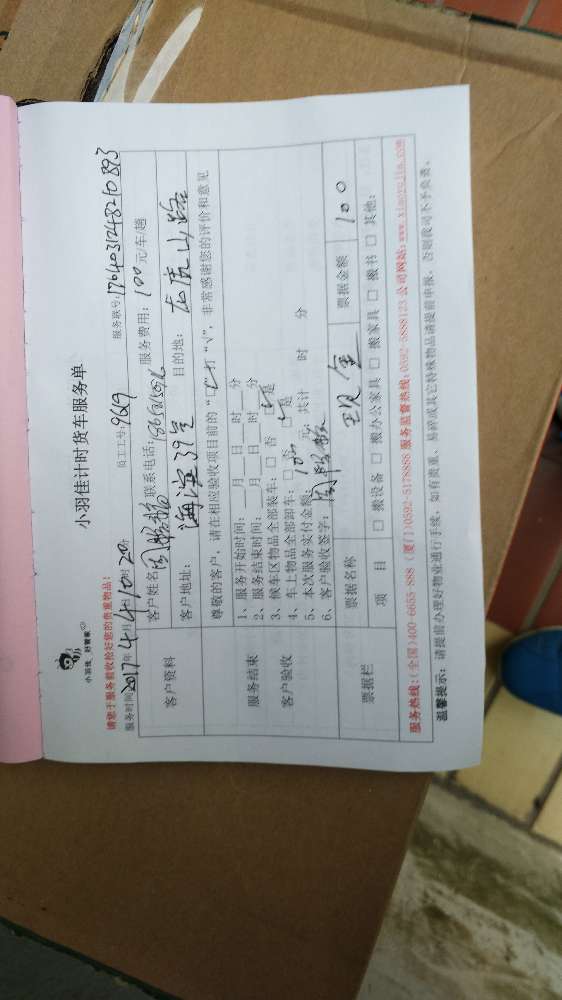 小羽佳 好管家
小羽佳计时货车服务单
请您于服务前收拾好您的贵重物品!
服务时间:2017年4月4日10时20分 员工工号:9619 服务联号:
客户资料
客户姓名 联系电话: 服务费用:100元/车/趟
客户地址:海滨39号 目的地:龙虎山路
服务结束 客户验收
尊敬的客户,请在相应验收项目前的“□”打“√”,非常感谢您的评价和意见
1、服务开始时间:__月__日__时__分
2、服务结束时间:__月__日__时__分
3、候车区物品全部装车:□否 □是
4、车上物品全部卸车:□否 □是
5、本次服务实付金额:100元,共计 时 分
6、客户验收签字:
票据栏
票据名称 现金 票据金额 100
项 目 □搬设备 □搬办公家具 □搬家具 □搬书 □其他:
服务热线:(全国)400-6655-888 (厦门)0592-5178888 服务监督热线:0592-5888123 公司网站:www.xiaoyujia.com
温馨提示:请提前办理好物业通行手续,如有贵重、易碎或其它特殊物品请提前申报,否则我司不予负责。